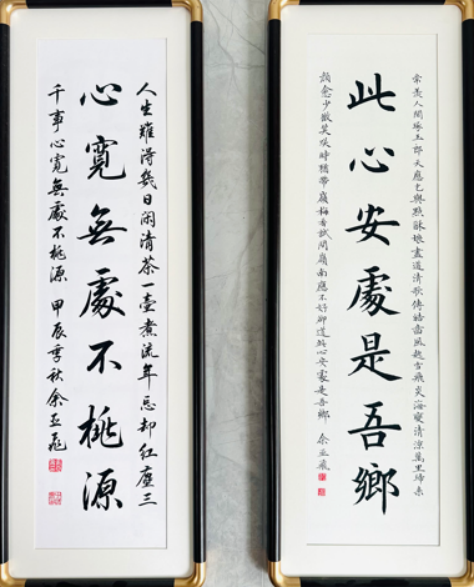 常羨人間琢玉郎天應乞與點酥娘盡道清歌傳皓齒風起雪飛炎海變清涼萬里歸來
此心安處是吾鄉
顏愈少微笑笑時猶帶嶺梅香試問嶺南應不好卻道此心安處是吾鄉 余亞飛
人生難得幾日閑清茶一壺煮流年忘却紅塵三
心寬無處不桃源
千事心寬無處不桃源 甲辰季秋余亞飛